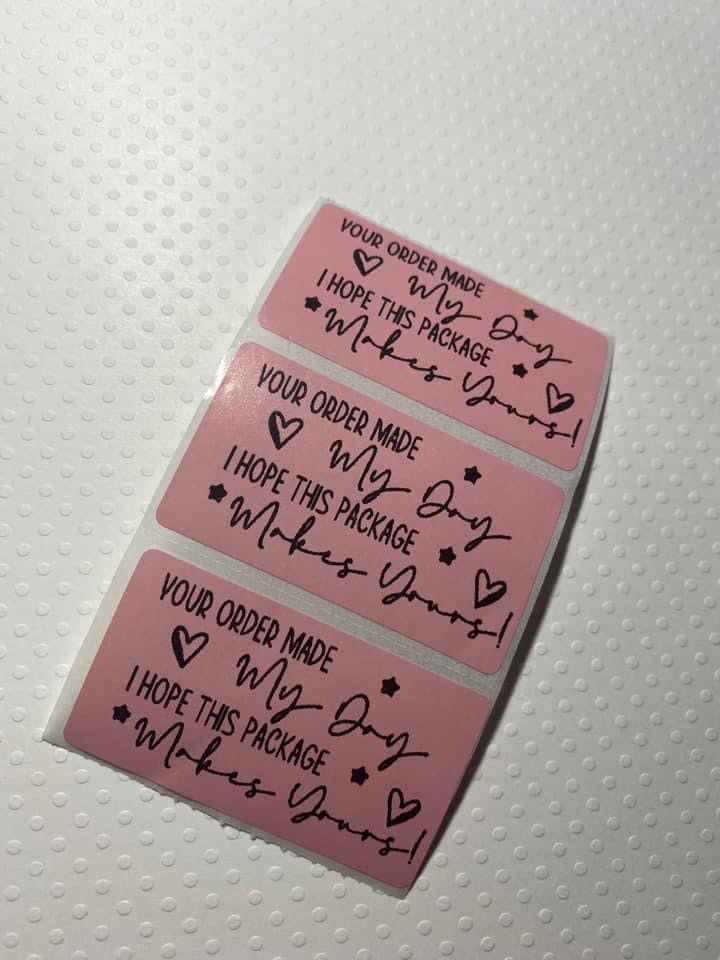 YOUR ORDER MADE
My Day
I HOPE THIS PACKAGE
Makes Yours!
YOUR ORDER MADE
My Day
I HOPE THIS PACKAGE
Makes Yours!
YOUR ORDER MADE
My Day
I HOPE THIS PACKAGE
Makes Yours!